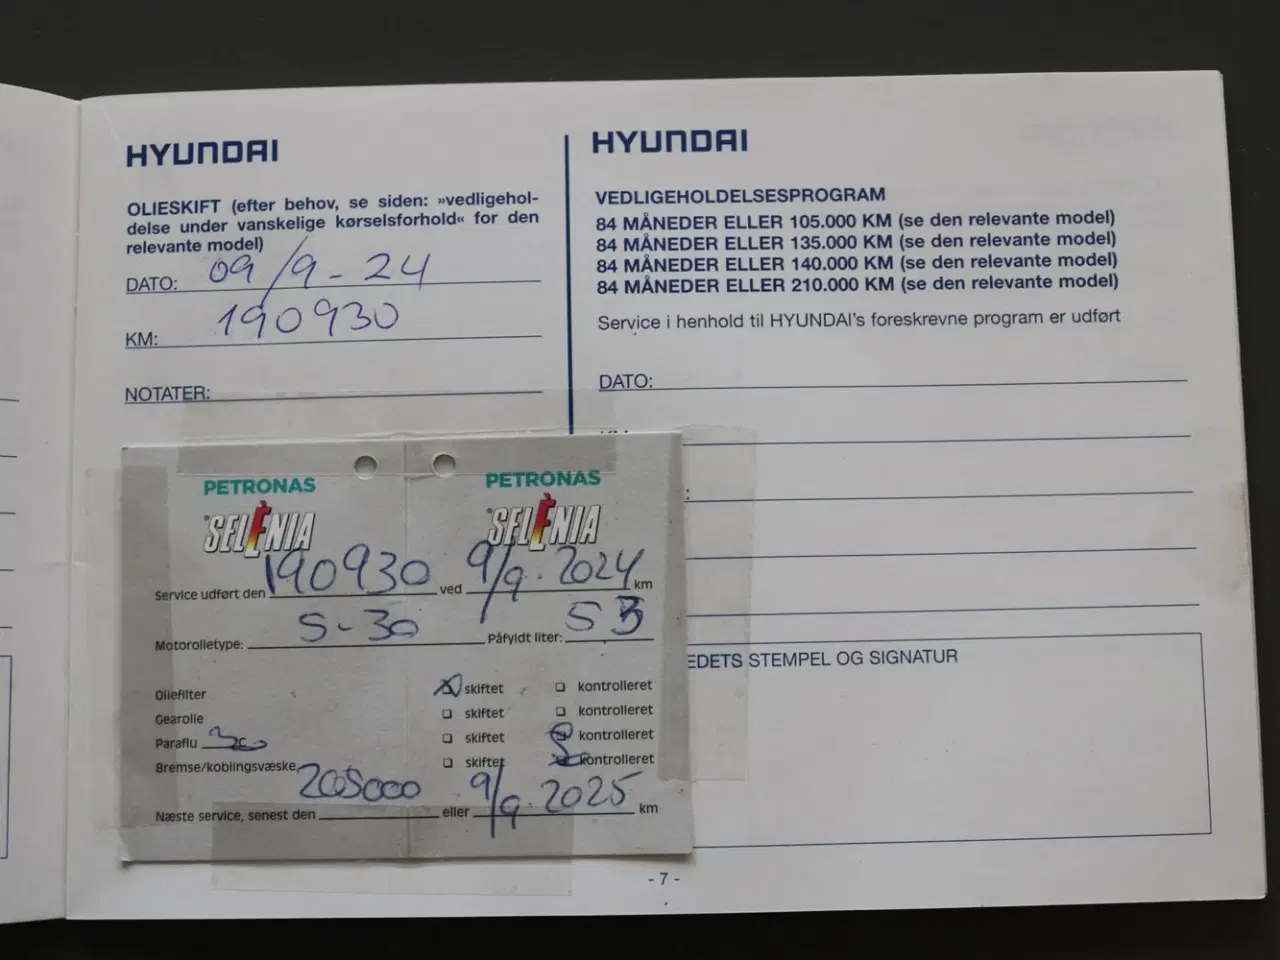 HYUNDAI
OLIESKIFT (efter behov, se siden: »vedligehol-
delse under vanskelige kørselsforhold« for den
relevante model)
DATO: 09/9-24
KM: 190930
NOTATER:
HYUNDAI
VEDLIGEHOLDELSESPROGRAM
84 MÅNEDER ELLER 105.000 KM (se den relevante model)
84 MÅNEDER ELLER 135.000 KM (se den relevante model)
84 MÅNEDER ELLER 140.000 KM (se den relevante model)
84 MÅNEDER ELLER 210.000 KM (se den relevante model)
Service i henhold til HYUNDAI's foreskrevne program er udført
DATO:
EDETS STEMPEL OG SIGNATUR
PETRONAS PETRONAS
SELÈNIA SELÈNIA
Service udført den 190930 ved 9/9.2024 km
Motorolietype: 5-30 Påfyldt liter:
Oliefilter skiftet kontrolleret
Gearolie skiftet kontrolleret
Paraflu skiftet kontrolleret
Bremse/koblingsvæske skiftet kontrolleret
Næste service, senest den 205000 eller 9/9.2025 km
- 7 -